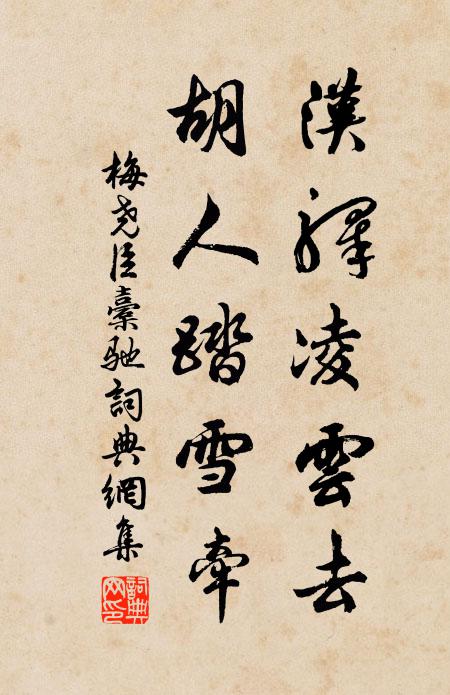 漢驛凌雲去
胡人踏雪牽
梅堯臣橐馳詞典網集
詞典
网印